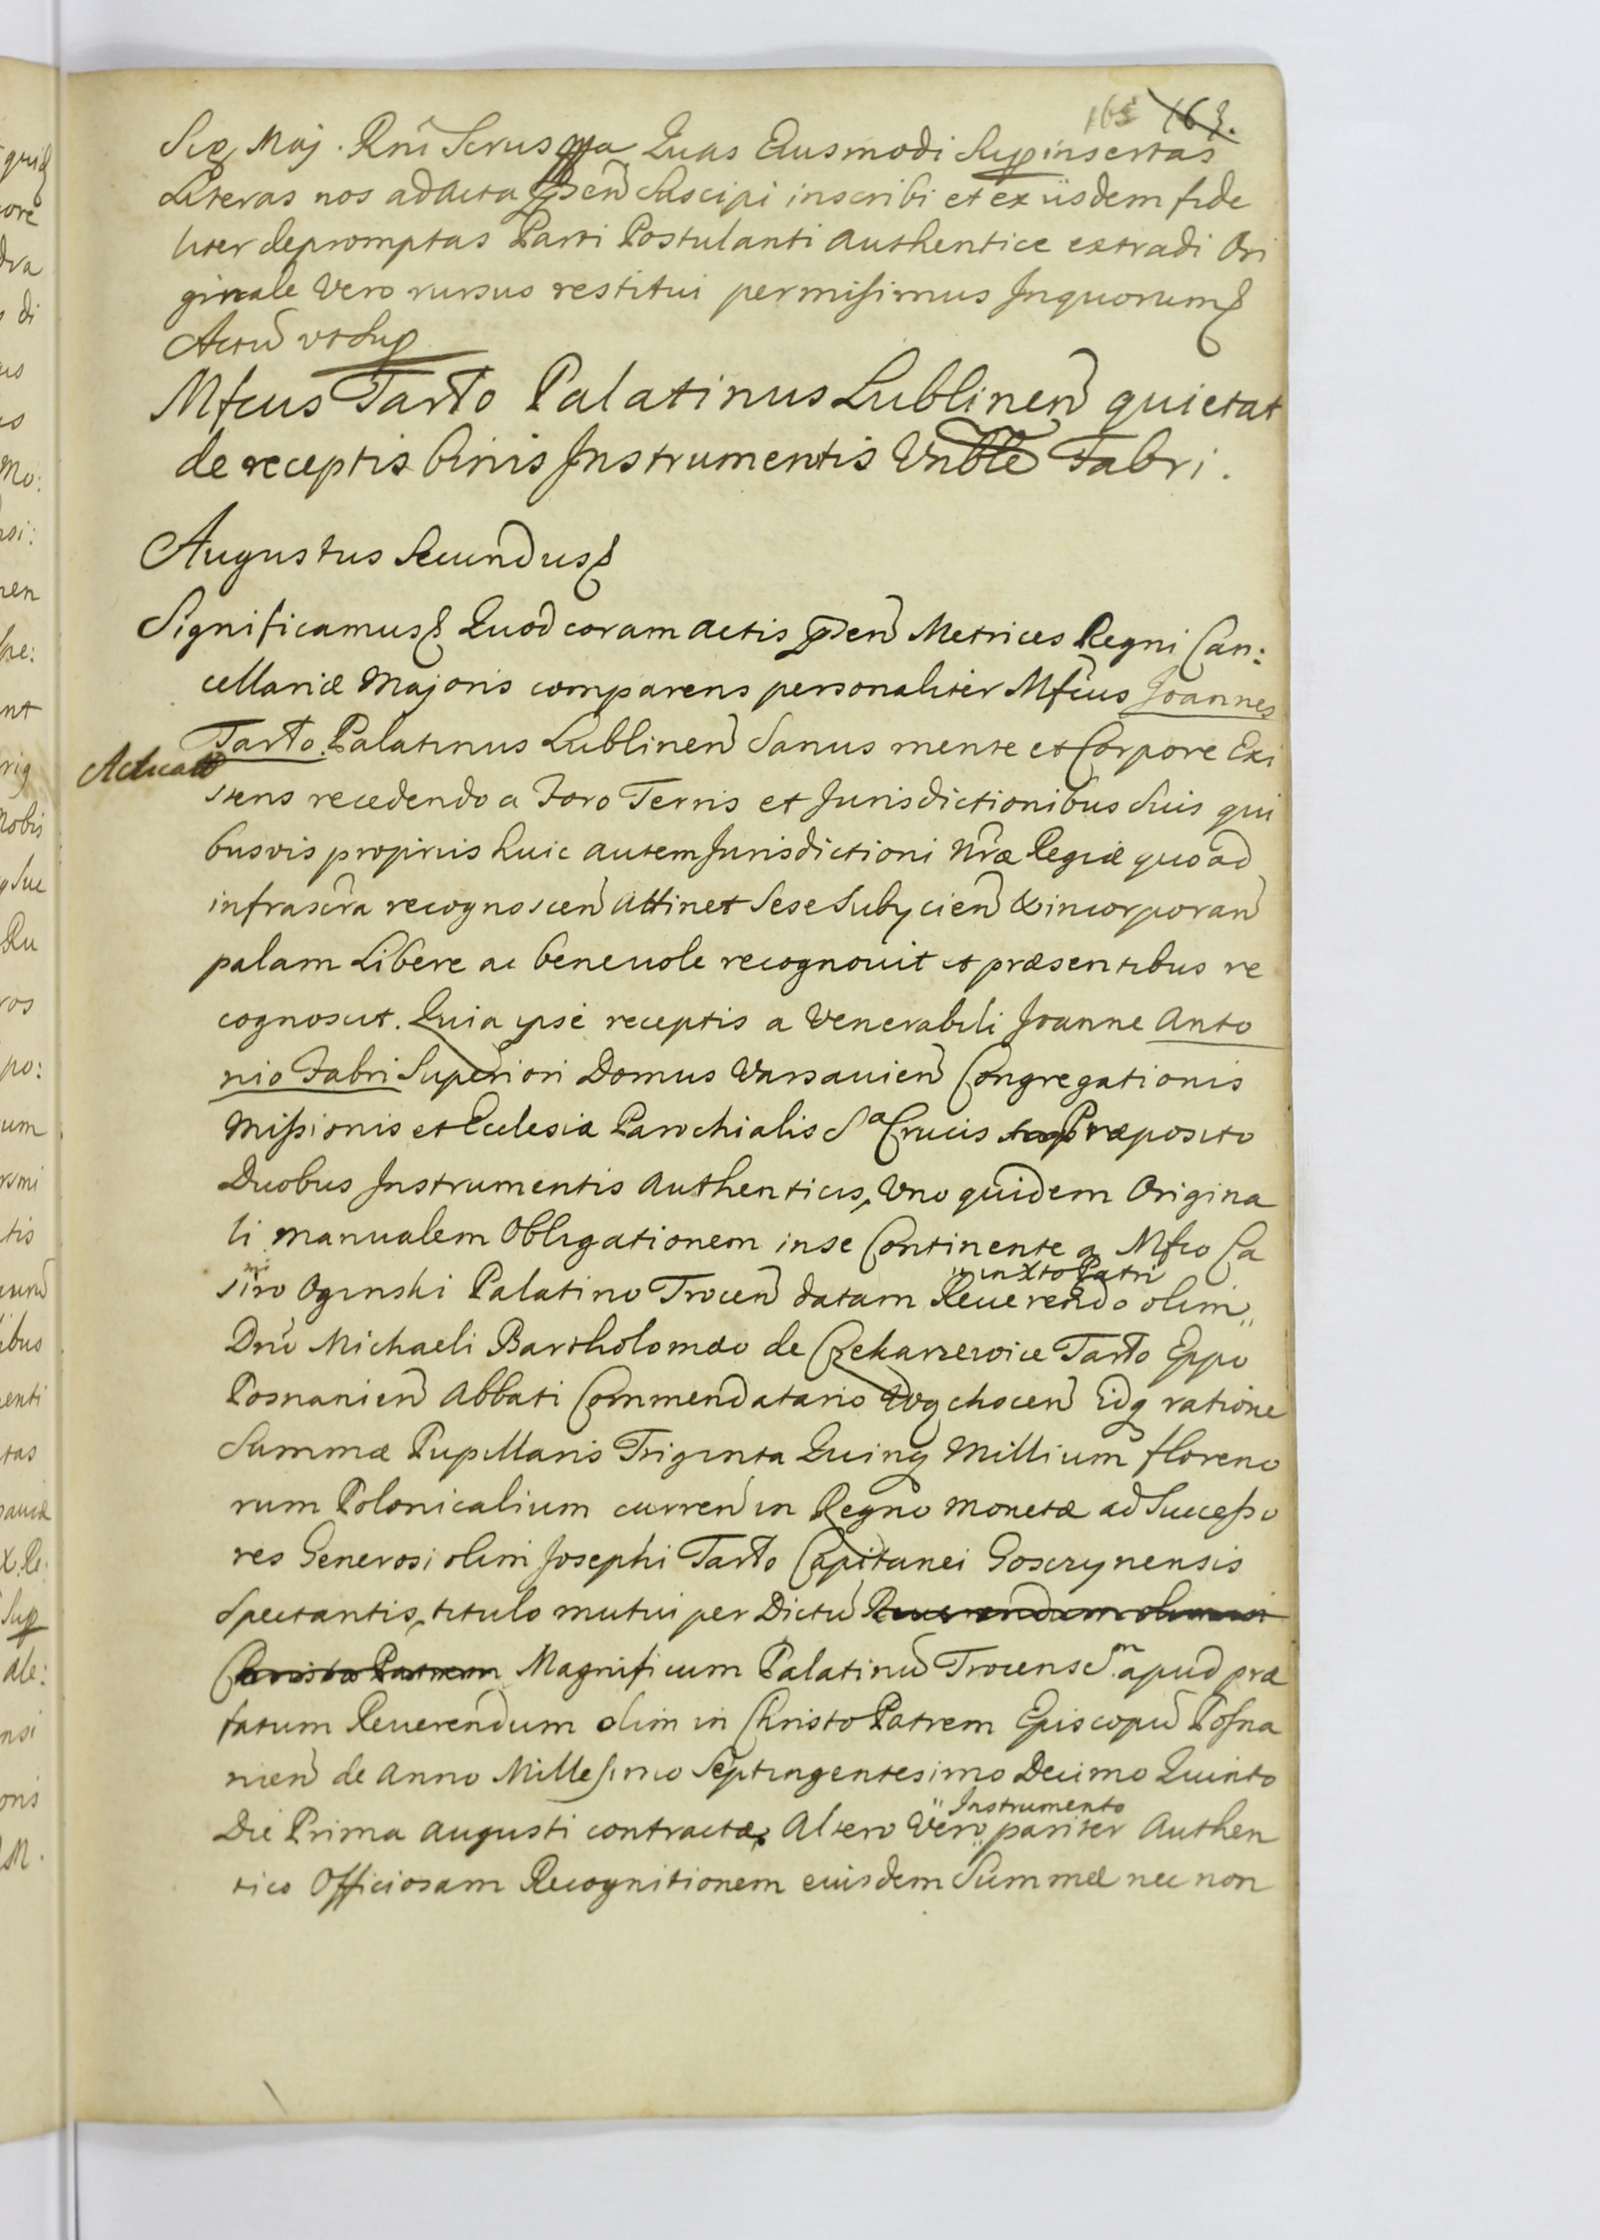 163.
Maj. Quas Eiusmodi Sup insertas
Literas nos ad Acta pñ suscipi inscribi et ex iisdem fide
liter depromptas Parti Postulanti authentice extradi Ori
ginale Vero rursus restitui permisimus Inquorum
Actũ ut Sup
Mfcus Tarło Palatinus Lublineñ quietat
de receptis binis Instrumentis Vnble Fabri.
Augustus Secundus
Significamus Quod coram actis pñ Metrices Regni Can:
cellariæ Majoris comparens personaliter Mfcus Joannes
Tarło Palatinus Lublineñ Sanus mente et Corpore Exi
Acticat
stens recedendo a Foro Terris et Jurisdictionibus Suis qui
busvis propriis huic autem Jurisdictioni Nræ Regiæ quo ad
infrascra recognosceñ attinet Sese Subycieñ & incorporañ
palam Libere ac beneuole recognouit et præsentibus re
cognoscit. Quia ipse receptis a Venerabili Joanne Anto
nio Fabri Superiori Domus Varsauieñ Congregationis
Missionis et Ecclesiæ Parochialis Sa Crucis Præposito
Duobus Instrumentis Authenticis, Vno quidem Origina
li manualem Obligationem in se Continente a Mfco Ca
simiro Oginski Palatino Troceñ datam Reuerendo olim
in Xto Patri
Dnõ Michaeli Bartholomæo de Czekarzewice Tarło Eppo
Posnanieñ Abbati Commendatario Wągchoceñ Idq ratione
Summæ Pupillaris Triginta Quinq Millium floreno
rum Polonicalium curreñ in Regno monetæ ad Successo
res Generosi olim Josephi Tarło Capitanei Goszczynensis
Spectantis, titulo mutui per Dictũ Reuerendum olim in
Christo Patrem Magnificum Palatinũ Trocensem apud præ
fatum Reuerendum olim in Christo Patrem Episcopũ Posna
nieñ de Anno Millesimo Septingentesimo Decimo Quinto
Die Prima Augusti contractæ, Altero Vero pariter Authen
Instrumento
tico Officiosam Recognitionem eiusdem Summæ nec non